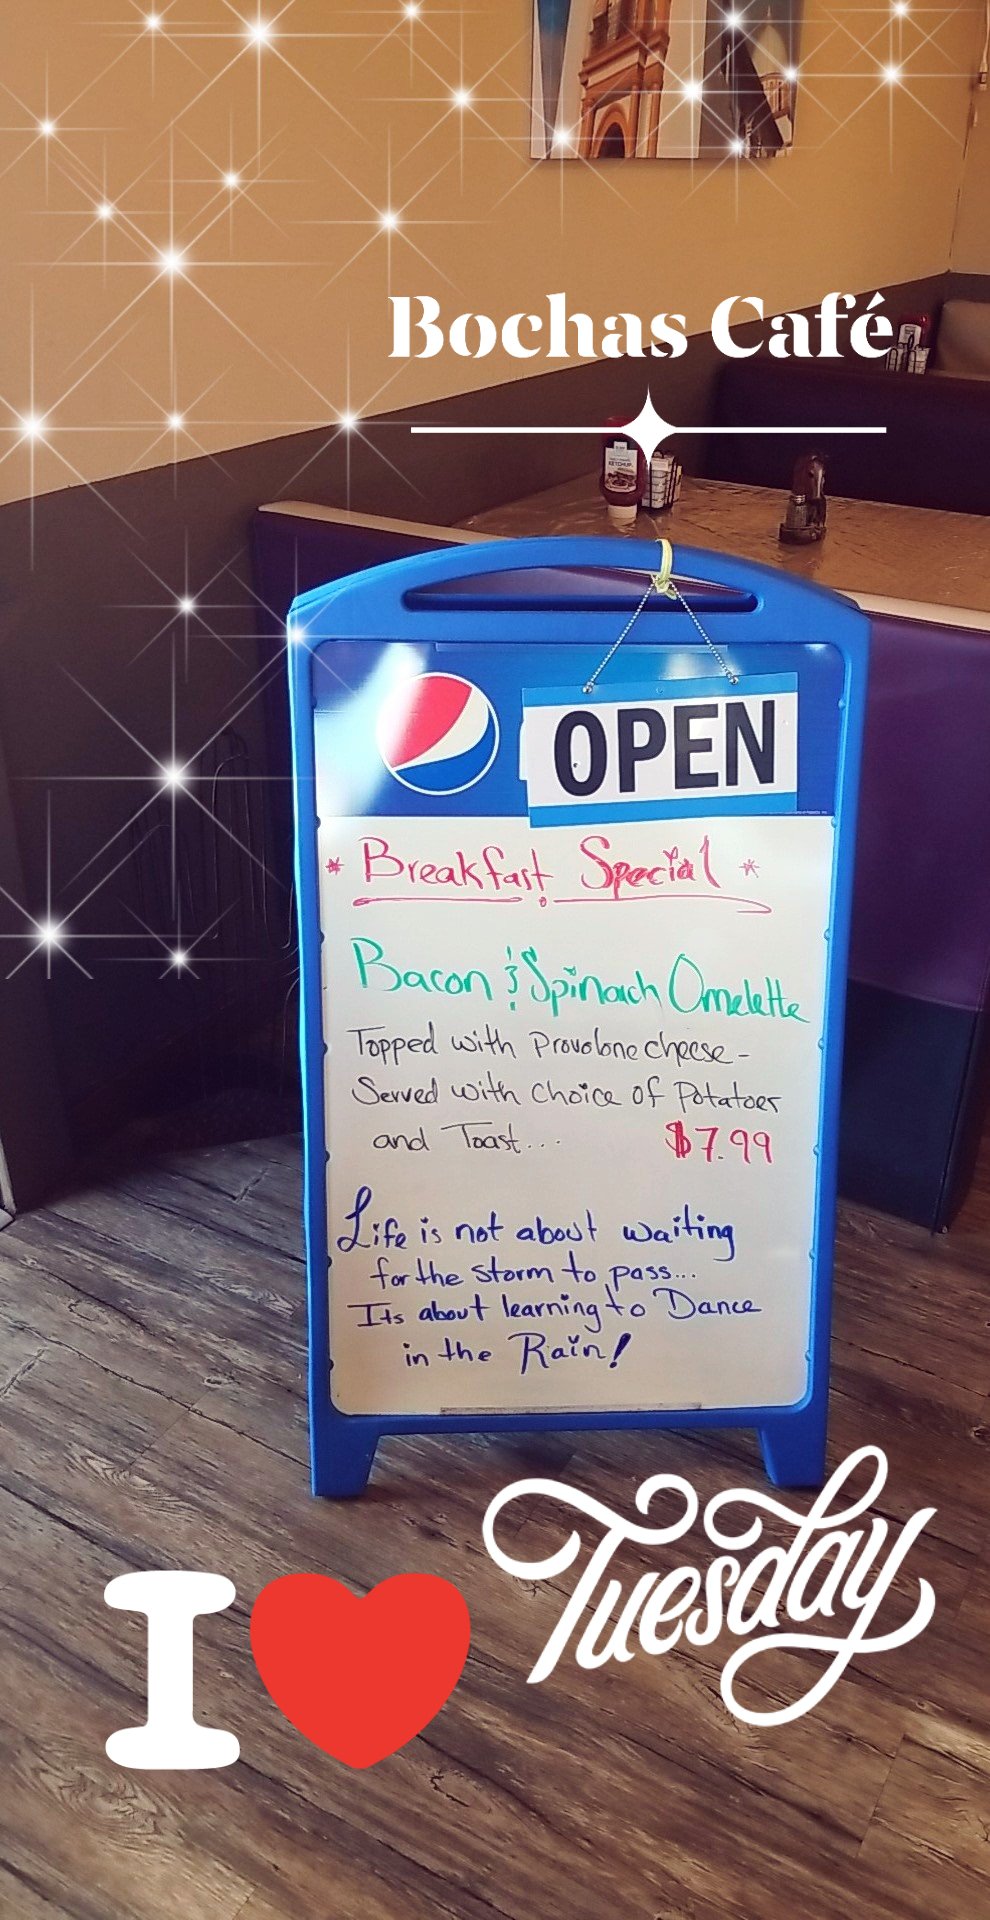 Bochas Café
KETCHUP
OPEN
* Breakfast Special *
Bacon & Spinach Omelette
Topped with Provolone cheese -
Served with choice of Potatoes
and Toast...
$7.99
Life is not about waiting
for the storm to pass...
Its about learning to Dance
in the Rain!
I ❤
Tuesday